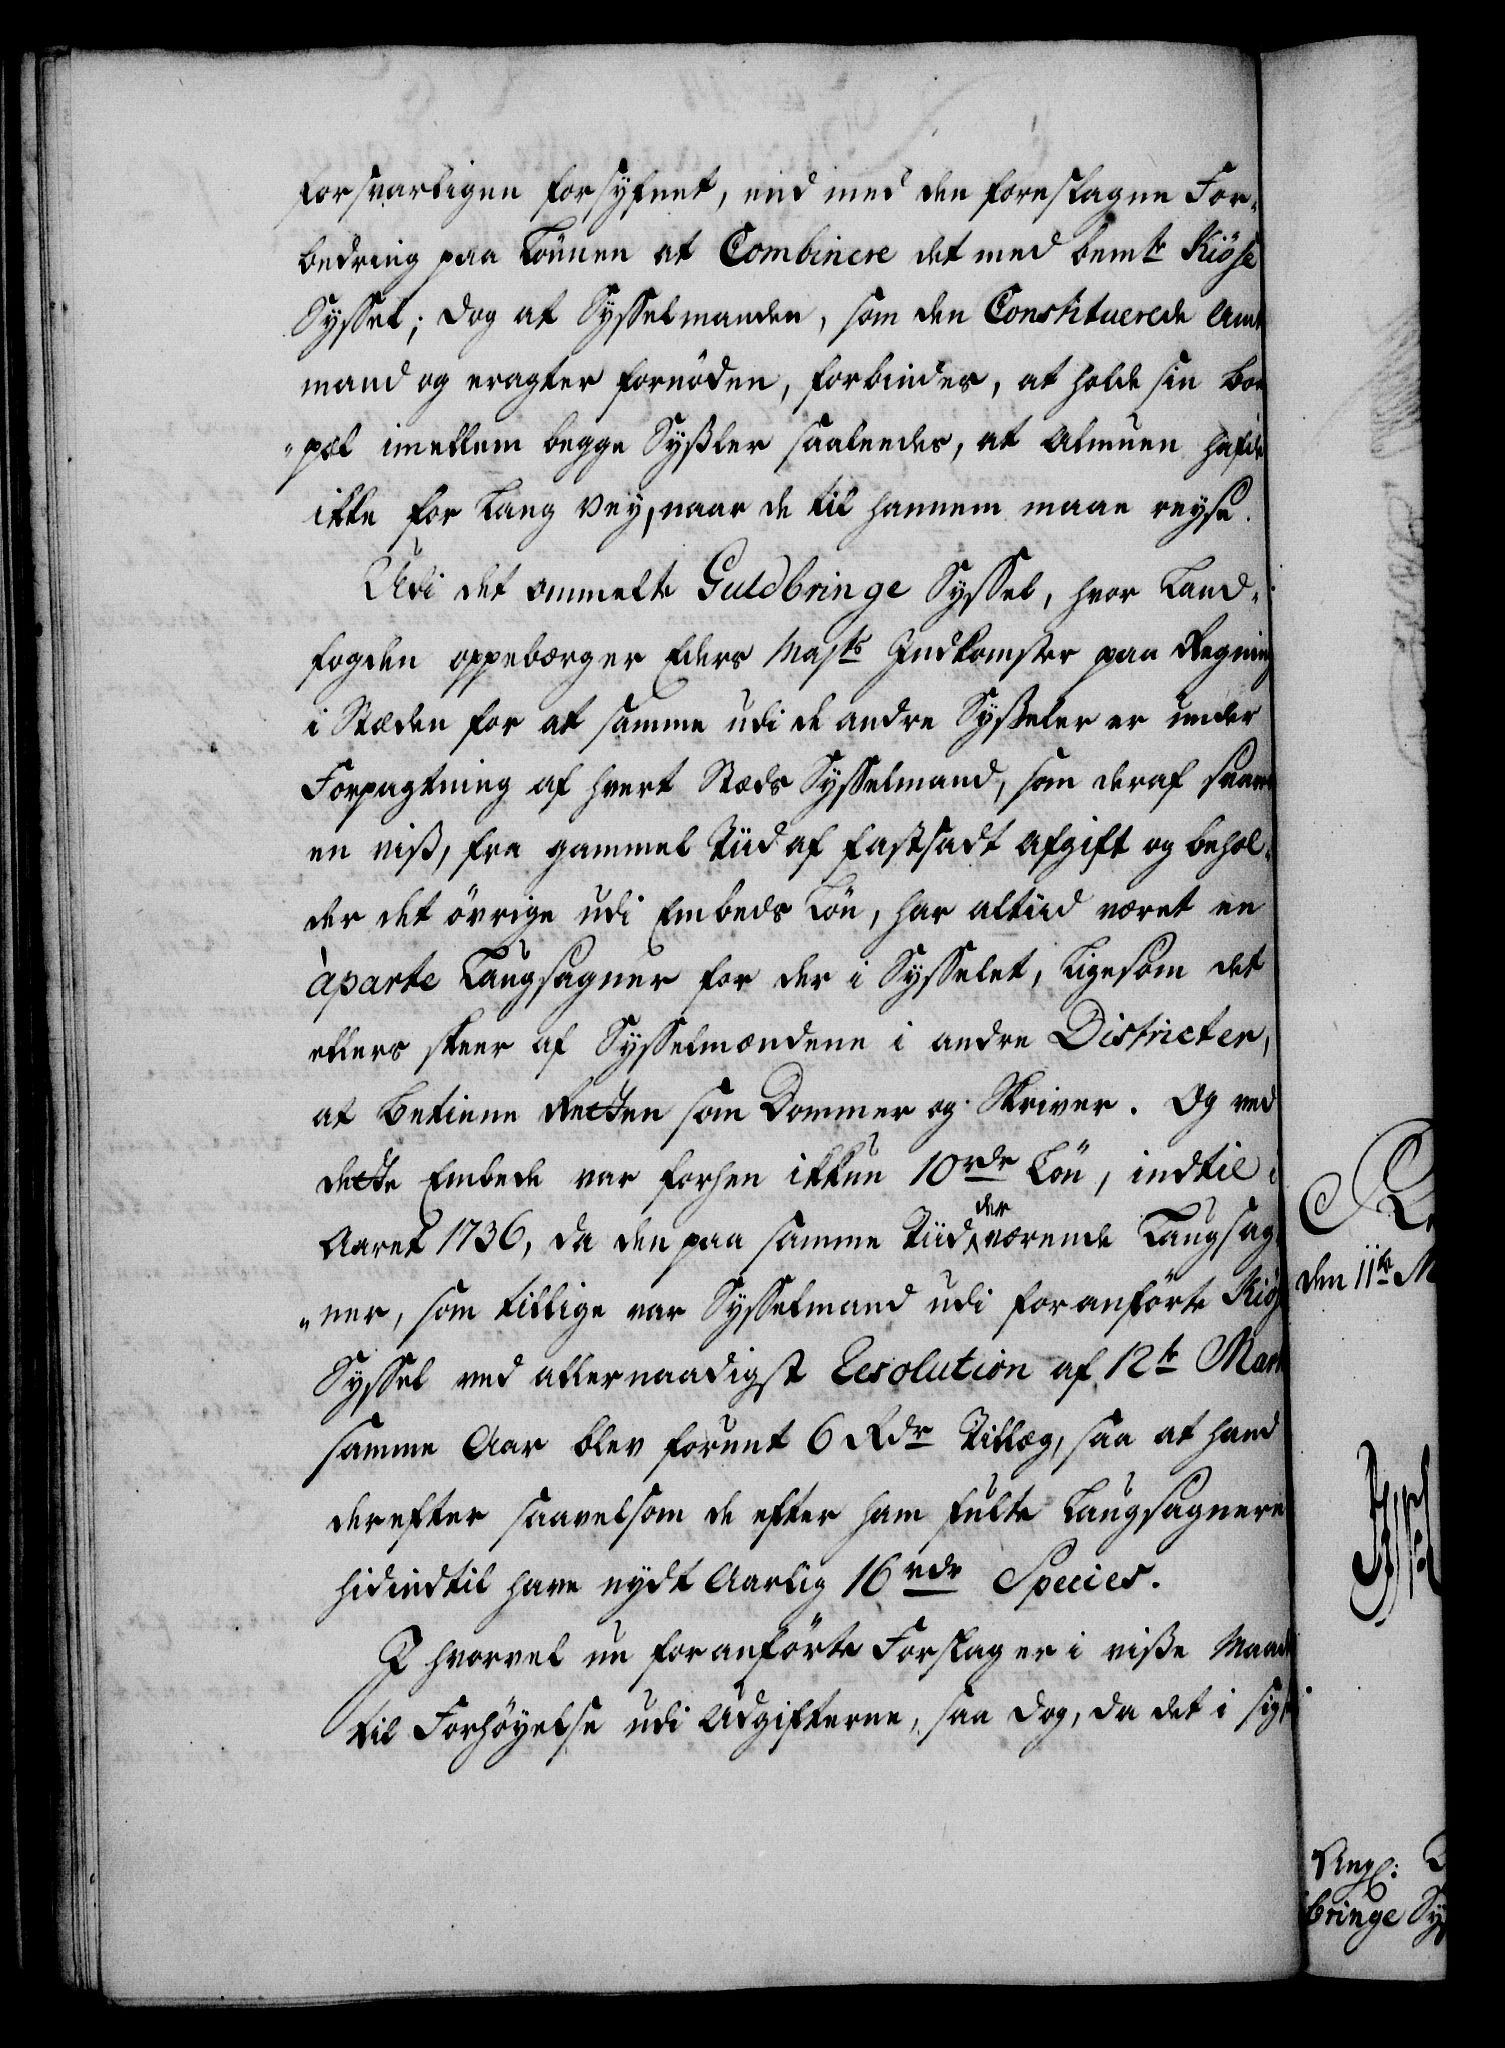 forsvarligen forsyfnet, end med den foreslagne For-
bedring paa Lönnen at Combinere det med bemte Kiöse
Syssel; dog at Sysselmanden, som den Constituerede Amt
mand og eragter fornöden, forbindes, at holde sin Boe
"pæl imellem begge Syßler saaleedes, at Almuen hafde
ikke for Lang Vey, naar de til hannem maae reyse.
Udi det ommelte Guldbringe Syssel, hvor Land-
fogden oppebærger Eders Majts Indkomster paa Regning
i Stæden for at samme udi de andre Syßeler er under
Forpagtning af hvert Stæds Sysselmand, som deraf svare
en viß, fra gammel Tiid af fastsadt Afgift og behol-
der det övrige udi Embeds Lön, har altiid været en
àparte Laugsagner for der i Sysselet, Ligesom det
ellers skeer af Sysselmændene i andre Districter,
at Betiene Retten som Dommer og Skriver. Og ved
dette Embede var forhen ikkun 10 rdr Lön, indtil i
Aaret 1736, da den paa samme Tiid der værende Laugsag
"ner, som tillige var Sysselmand udi foranförte Kiös
Syssel ved allernaadigst Resolution af 12te Marti
samme Aar blev forunt 6 Rdr Tillæg, saa at hand
derefter saavelsom de efter ham fulte Laugsagnere
hidindtil have nydt Aarlig 16 rdr Species.
I hvorvel nu foranförte Forslag er i viße Maade
til Forhöyelse udi Udgifterne, saa dog, da det i sig s
den 11te M
bringe Sy